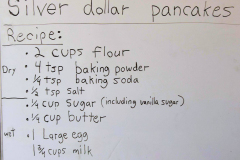 Silver dollar pancakes
Recipe:
• 2 cups flour
Dry • 4 tsp baking powder
• ¼ tsp baking soda
• ½ tsp salt
• ¼ cup sugar (including vanilla sugar)
• ¼ cup butter
wet • 1 Large egg
1 ¾ cups milk